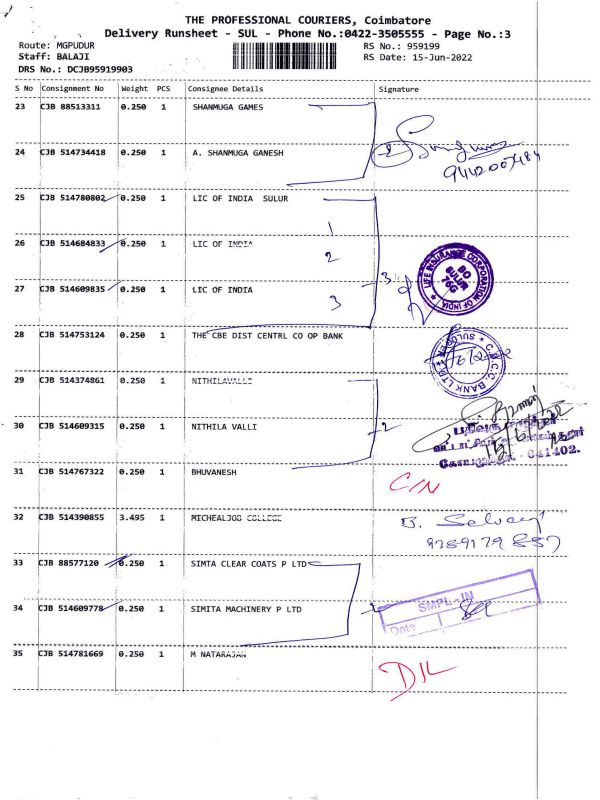 THE PROFESSIONAL COURIERS, Coimbatore
Delivery Runsheet - SUL - Phone No.:0422-3505555 - Page No.:3
Route: MGPUDUR
RS No.: 959199
Staff: BALAJI
RS Date: 15-Jun-2022
DRS No.: DCJB95919903
S No Consignment No Weight PCS Consignee Details Signature
23 CJB 88513311 0.250 1 SHANMUGA GAMES
24 CJB 514734418 0.250 1 A. SHANMUGA GANESH
2
25 CJB 514780802 0.250 1 LIC OF INDIA SULUR
1
26 CJB 514684833 0.250 1 LIC OF INDIA
2
27 CJB 514609835 0.250 1 LIC OF INDIA
3
3
LIFE INSURANCE CORPORATION OF INDIA
BO
SULUR
76G
28 CJB 514753124 0.250 1 THE CBE DIST CENTRL CO OP BANK
29 CJB 514374861 0.250 1 NITHILAVALLI
30 CJB 514609315 0.250 1 NITHILA VALLI
2
641402.
31 CJB 514767322 0.250 1 BHUVANESH
C/N
32 CJB 514390855 3.495 1 MICHEALJOB COLLEGE
33 CJB 88577120 0.250 1 SIMTA CLEAR COATS P LTD
34 CJB 514609778 0.250 1 SIMITA MACHINERY P LTD
SMPL - IN
Date
35 CJB 514781669 0.250 1 M NATARAJAN
D/L